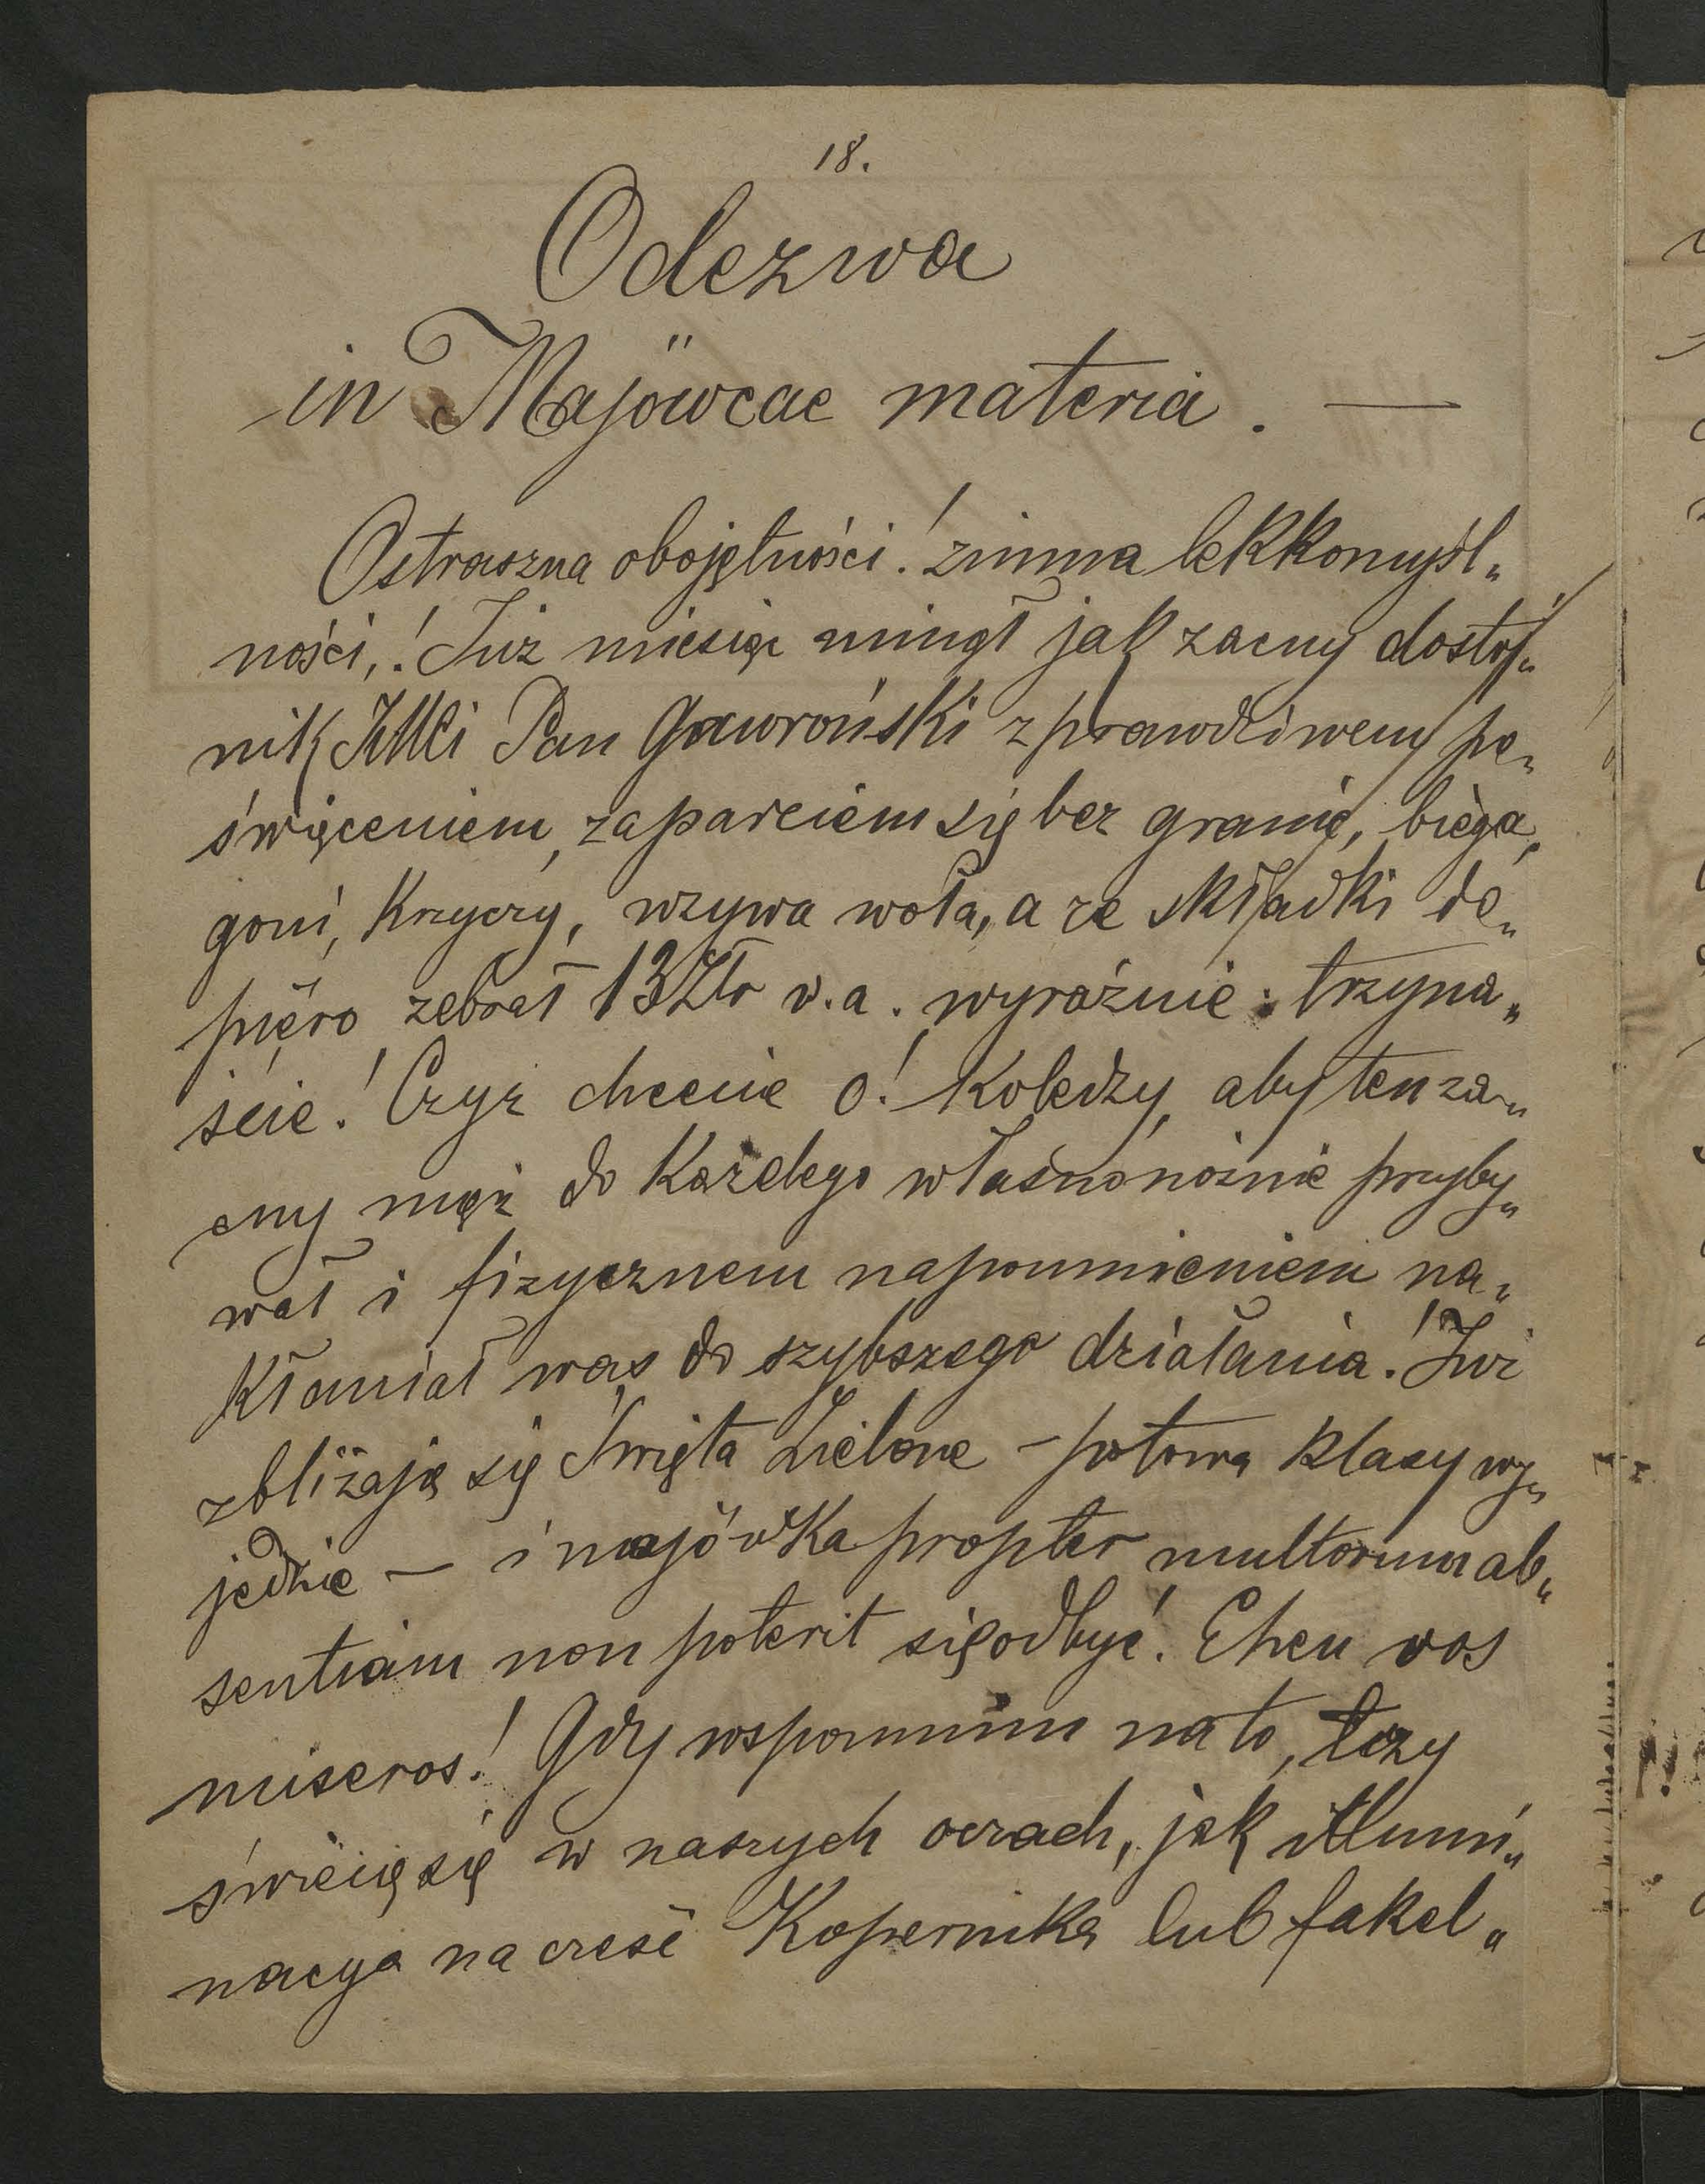 18.
Odezwa
in Majöwcae materia. —
Ostraszna obojętności! zimna lekkomyśl„
ności,! Już miesiąc minął jak zacny dostoj„
nik JMci Pan Gawroński z prawdziwem po„
święceniem, zaparciem się bez granic, biega,
goni, krzyczy, wzywa woła, a ze składki do„
piéro zebrał 13 Złr w.a. wyraźnie: trzyna„
ście! Czyż chcecie o! Koledzy, aby ten za„
cny mąż do każdego własnonożnie przyby„
wał i fizycznem napomnieniem na„
kłaniał was do szybszego działania! Już
zbliżają się Święta Zielone – połowa klasy wy„
jedzie – i majówka propter multorum ab„
sentiam non poterit się odbyć! Eheu vos
miseros! Gdy wspomnim na to, łzy
świécą się w naszych oczach, jak illumi„
nacya na cześć Kopernika lub fakel„